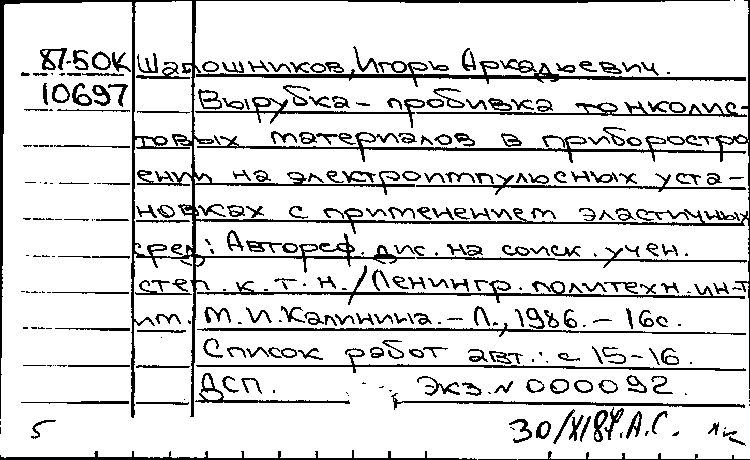 87-50К Шапошников, Игорь Аркадьевич.
10697 Вырубка - пробивка тонколис-
товых материалов в приборостро
ении на электроимпульсных уста-
новках с применением эластичных
сред: Автореф. дис. на соиск. учен.
степ. к. т. н. / Ленингр. политехн. ин-т
им. М. И. Калинина. - Л., 1986. - 16с.
Список работ авт.: с 15-16.
ДСП. Экз. N 000092.
5 А.С.